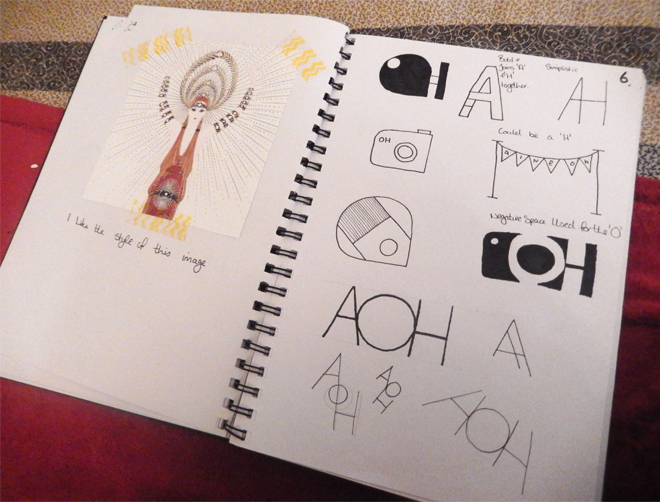 I Like the Style of this image
6.
Bold +
Joins 'A'
+ 'H'
together.
Simplistic
H
A
AH
Could be a 'H'
OH
Negative Space Used for the 'O'
OH
AOH
A
AOH
AOH
AOH